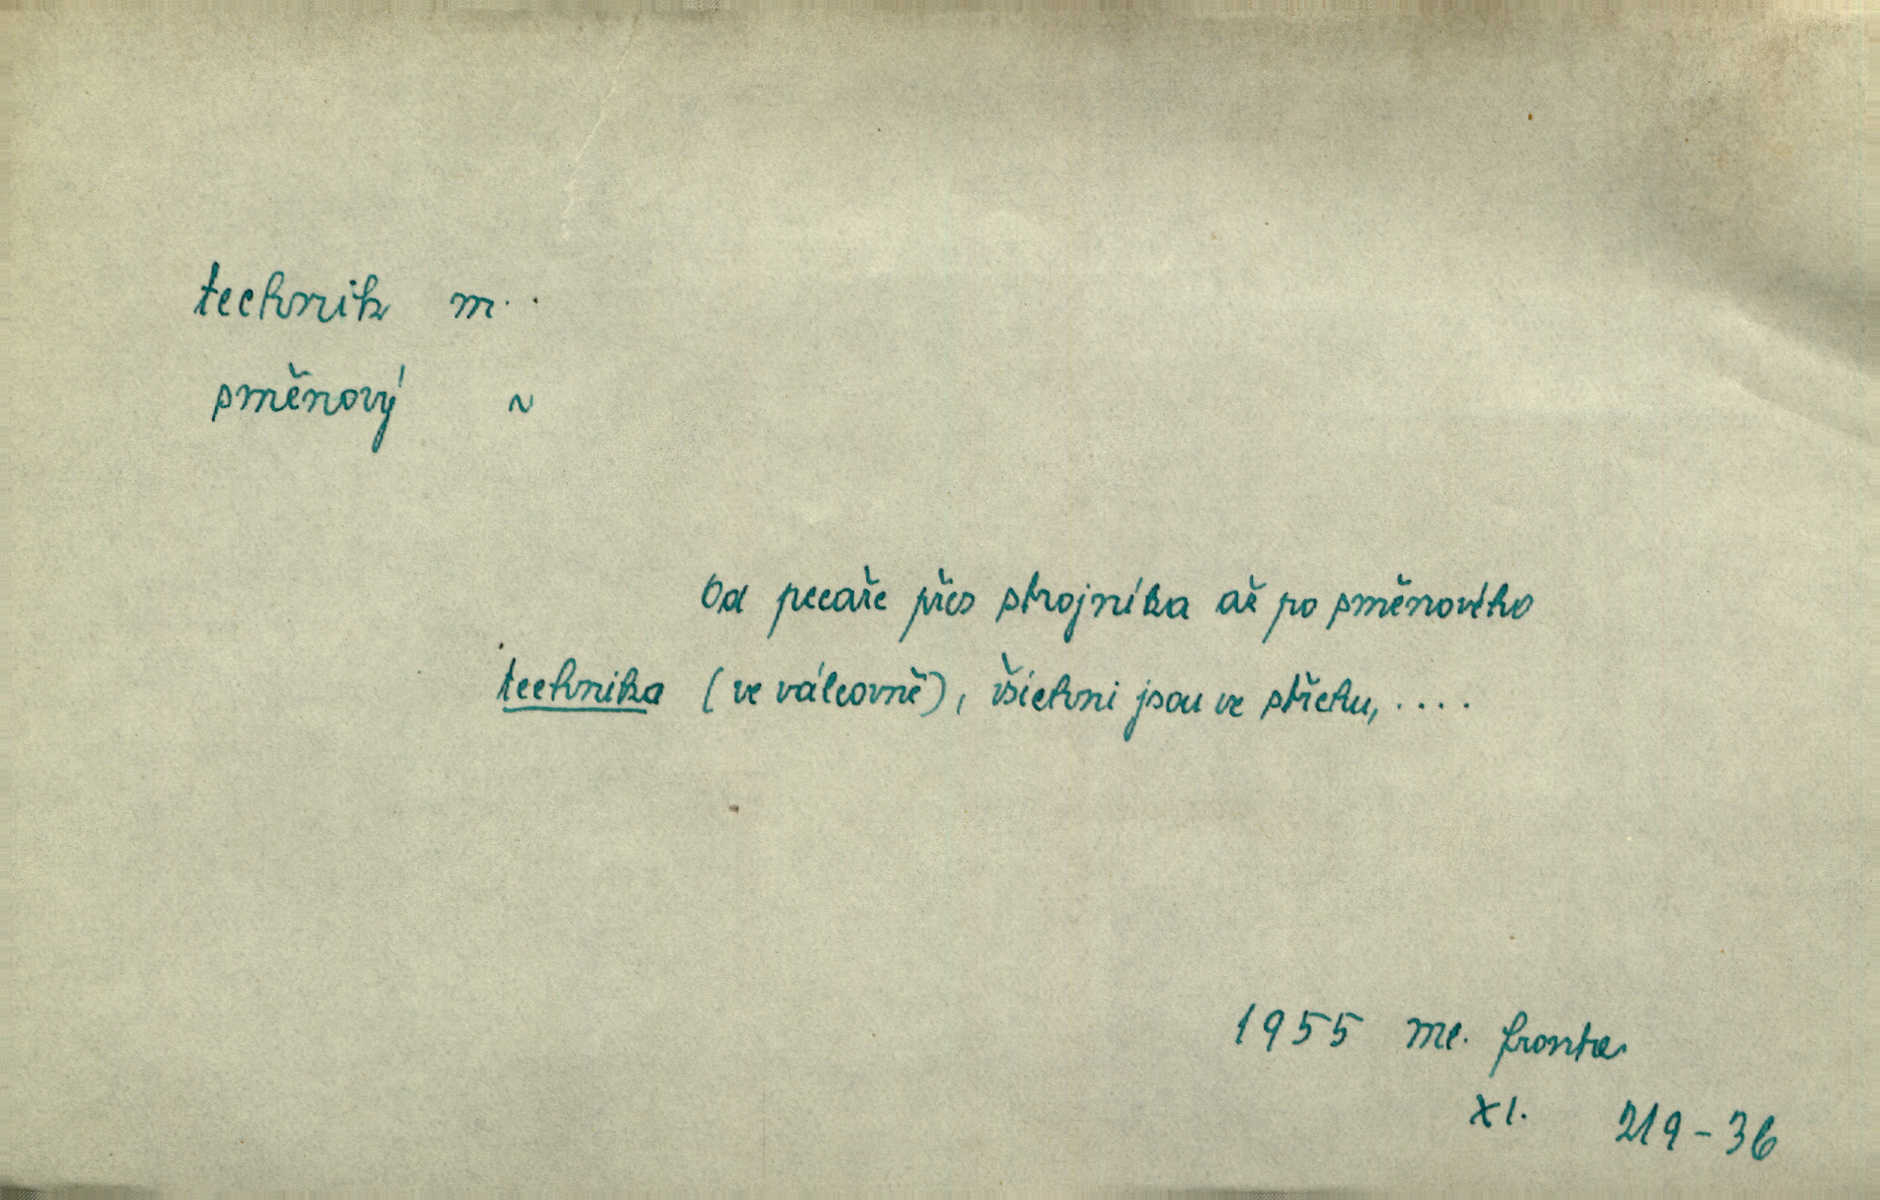 technik m..
směnový ~
Od pecaře přes strojníka až po směnového
technika (ve válcovně), všichni jsou ve střehu, ....
1955 Ml. fronta
XI. 219-36